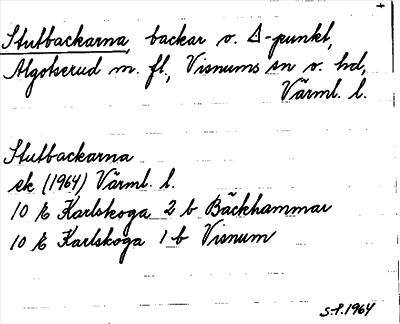 Stutbackarna, backar v. Δ-punkt,
Algotserud m. fl., Visnums sn v. hd,
Värml. l.
Stutbackarna
ek (1964) Värml. l.
10 E Karlskoga 2 b Bäckhammar
10 E Karlskoga 1 b Visnum
S.P. 1964